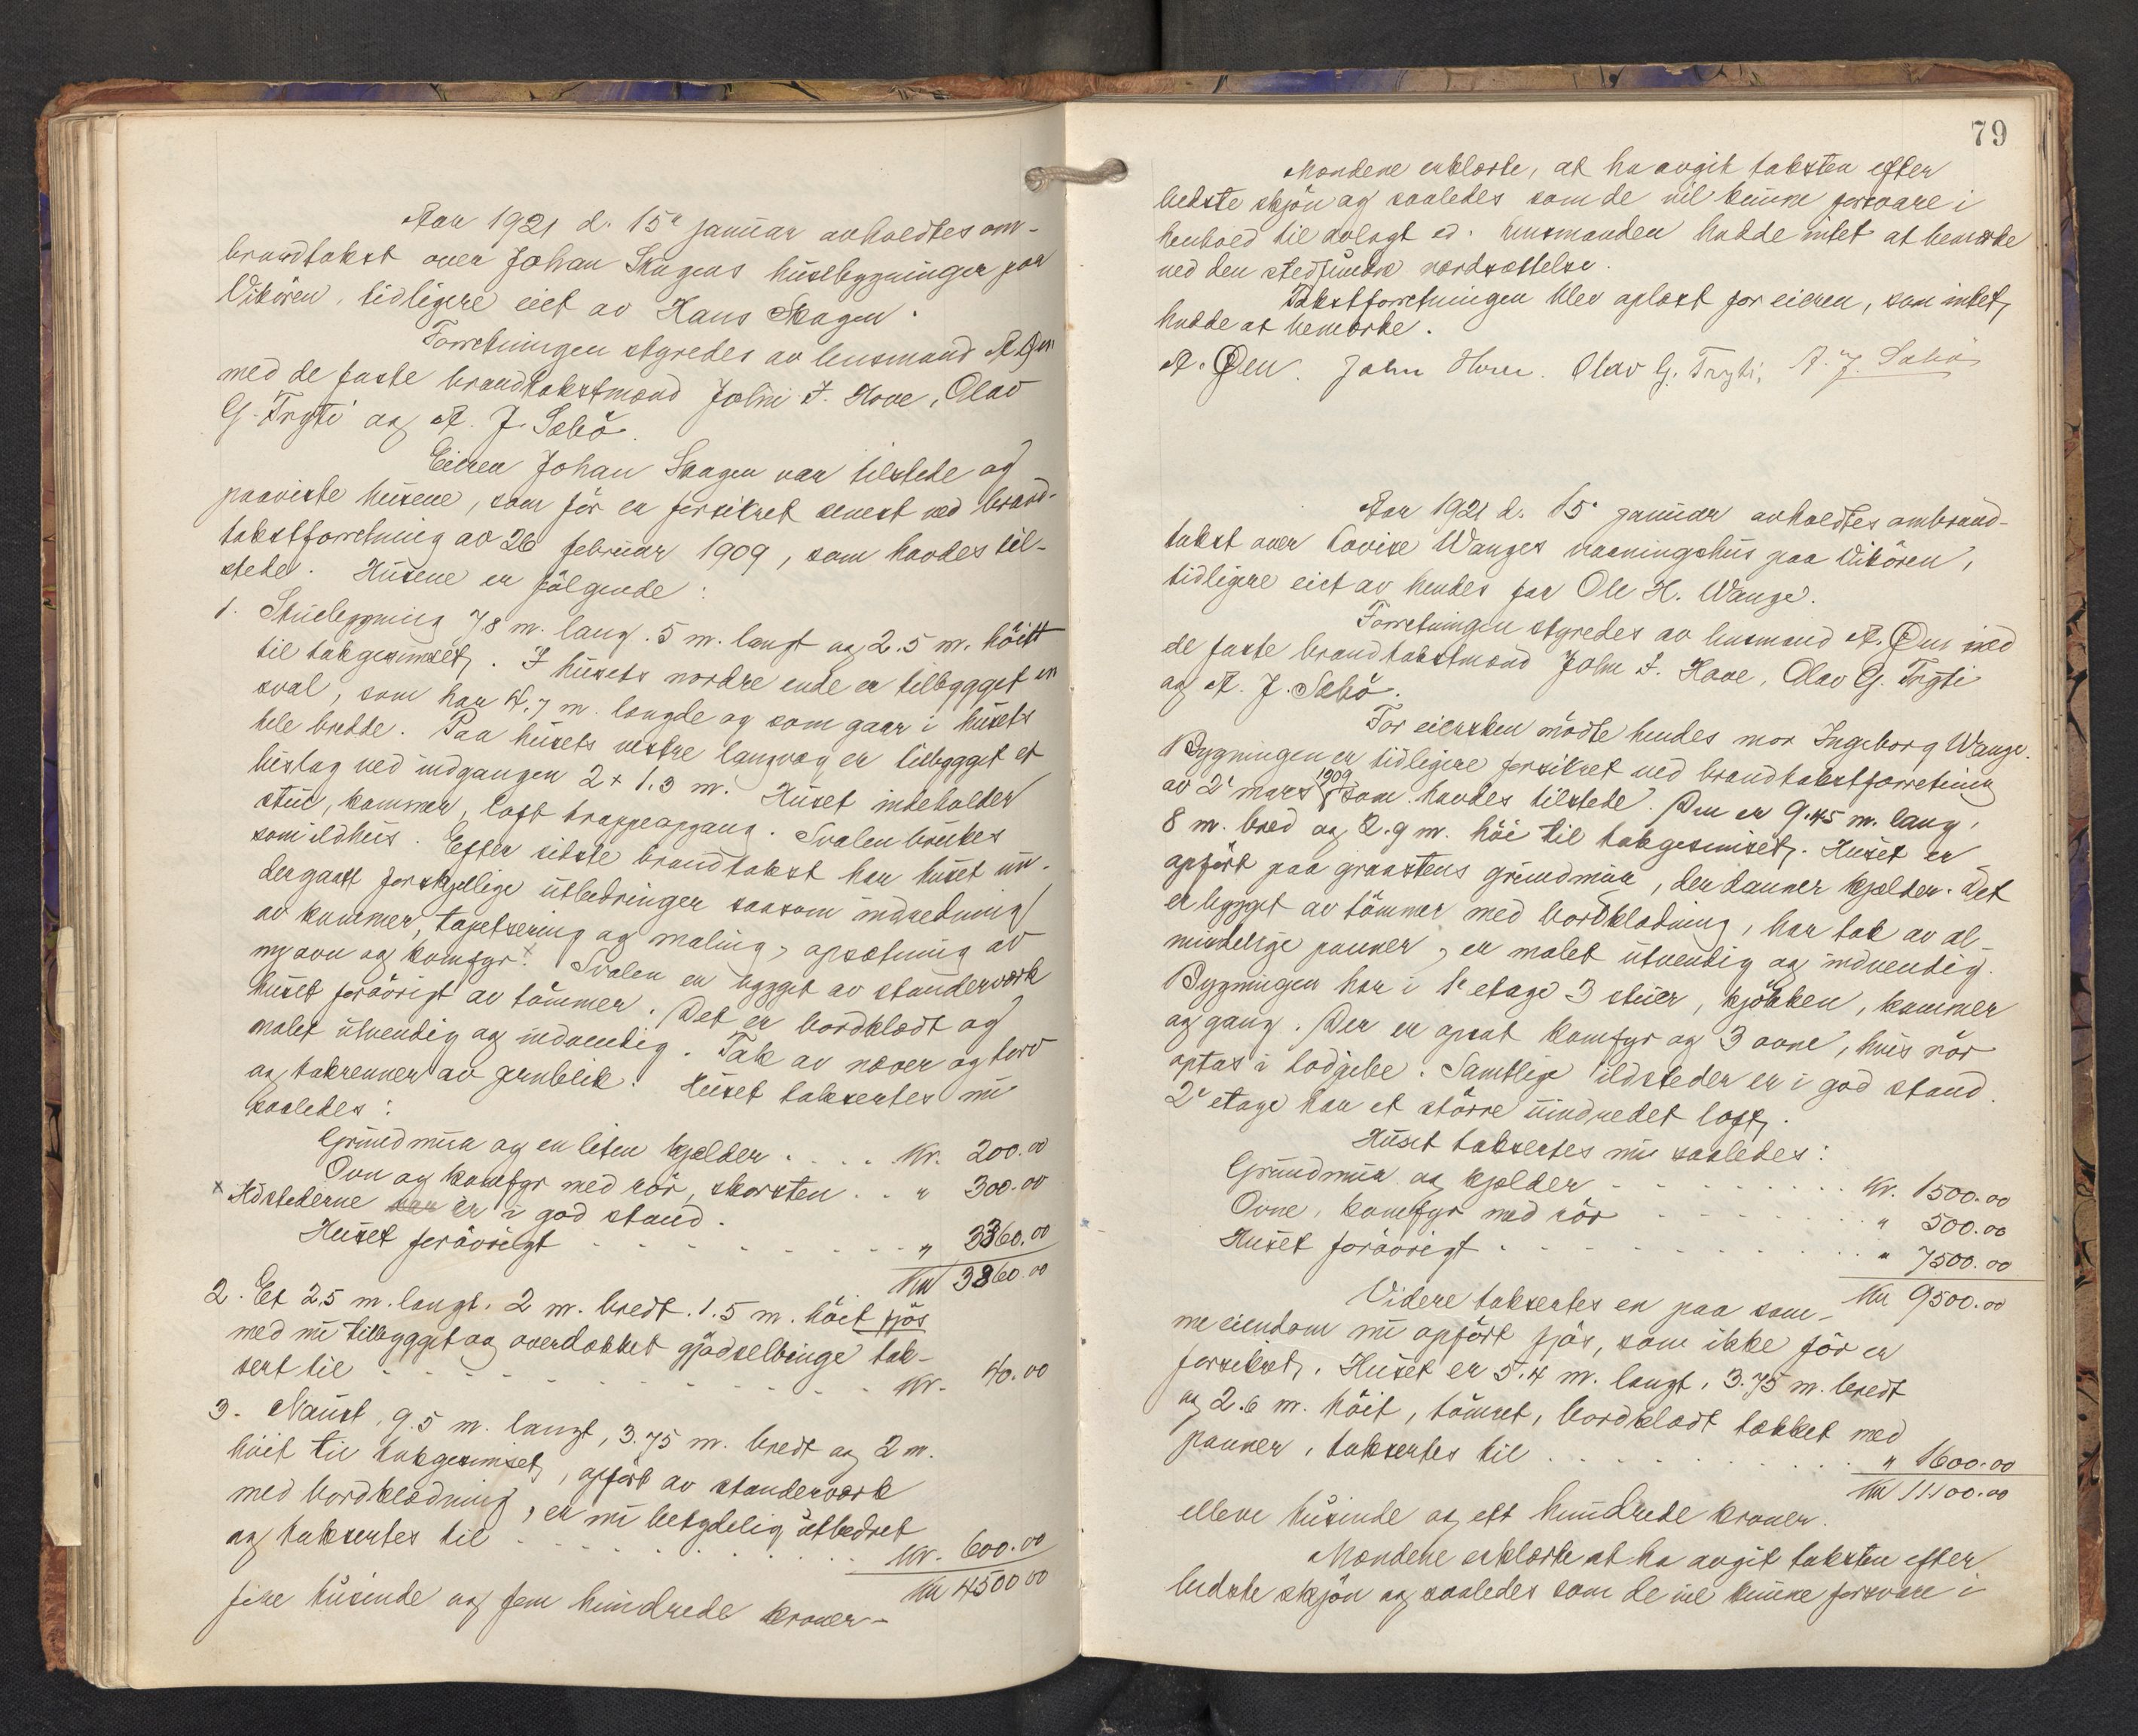 Aar 1921 d. 15de januar avholdtes om-
brandtakst over Johan Skagens husebygninger paa
Vikören, tidligere eiet av Hans Skagen.
Forretningen styredes av lensmand A. Øen
med de faste brandtakstmænd John I. Hove, Olav
G. Trygti og A. J. Sæbö.
Eieren Johan Skagen var tilstede og
paaviste husene, som för er forsikret senest ved brand-
takstforretning av 26 februar 1909, som havdes til-
stede. Husene er fölgende:
1. Stuebygning 7,8 m. lang. 5 m. langt og 2.5 m. höitt
til takgesimset. I husets nordre ende er tilbygget en
sval, som har 4.7 m. længde og som gaar i husets
hele bredde. Paa husets vestre langvæg er tilbygget et
bislag ved indgangen 2 x 1.3 m. Huset indeholder
stue, kammer, loft trappeopgang. Svalen brukes
som ildhus. Efter sidste brandtakst har huset un-
dergaatt forskjellige utbedringer saasom indredning
av kammer, tapetsering og maling, opsætning av
ny ovn og komfyr.x Svalen er bygget av standerværk
huset forövrigt av tömmer. Det er bordklædt og
malet utvendig og indvendig. Tak av næver og torv
og takrenner av jernblik. Huset taksertes nu
saaledes:
Grundmur og en liten kjælder . . . . Kr. 200.00
Ovn og komfyr med rör, skorsten . . " 300.00
x Ildstederne har er i god stand.
Huset forövrigt - - - - - - - " 3360.00
Kr 3860.00
2. Et 2.5 m. langt. 2 m. bredt. 1.5 m. höit fjös
med nu tilbygget og overdækket gjödselbinge tak-
sert til - - - - - - - - - - Kr. 40.00
3. Naust, 9.5 m. langt, 3.75 m. bredt og 2 m.
höit til takgesimset, opfört av standerværk
med bordklædning, er nu betydelig utbedret
og taksertes til - - - - - - - Kr. 600.00
Kr 4500 00
fire tusinde og fem hundrede kroner-
79
Mændene erklærte, at ha avgit taksten efter
bedste skjön og saaledes som de vil kunne forsvare i
henhold til avlagt ed. Lensmanden hadde intet at bemerke
ved den stedfundne værdsættelse.
Takstforretningen blev oplæst for eieren, som intet
hadde at bemerke.
A. Øen. John Hove. Olav G. Trygti, A. J. Sæbö
Aar 1921 d. 15. januar avholdtes ombrand-
takst over Lovise Wanges vaaningshus paa Vikören,
tidligere eiet av hendes far Ole H. Wange.
Forretningen styredes av lensmand A. Øen med
de faste brandtakstmænd John I. Hove, Olav G. Trygti
og A. J. Sæbö.
For eiersken mödte hendes mor Ingeborg Wange.
Bygningen er tidligere forsikret ved brandtakstforretning
av 2de mars 1909 som havdes tilstede. Den er 9.45 m. lang,
8 m. bred og 2.9 m. höi til takgesimset. Huset er
opfört paa graastens grundmur, der danner kjælder. Det
er bygget av tömmer med bordklædning, har tak av al-
mindelige panner, er malet utvendig og indvendig.
Bygningen har i 1e etage 3 stuer, kjökken, kammer
og gang. Der er opsat komfyr og 3 ovne, hvis rör
optas i lodpibe. Samtlige ildsteder er i god stand.
2e etage har et större uindredet loft.
Huset taksertes nu saaledes:
Grundmur og kjælder - - - - - - Kr. 1500.00
Ovne, komfyr med rör - - - - - - " 500.00
Huset forövrigt - - - - - - - - " 7500.00
Kr 9500.00
Videre taksertes en paa sam-
me eiendom nu opfört fjös, som ikke för er
forsikret. Huset er 5.4 m. langt, 3.75 m. bredt
og 2.6 m. höit, tömret, bordklædt tækket med
panner, taksertes til . . . . . . . " 1600.00
Kr 11100.00
elleve tusinde og ett hundrede kroner.
Mændene erklærte at ha avgit taksten efter
bedste skjön og saaledes som de vil kunne forsvare i